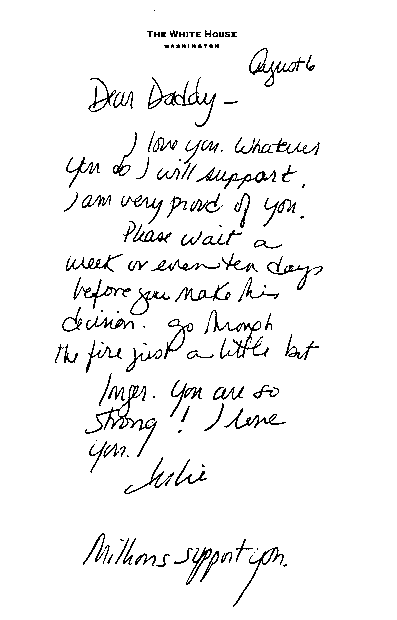 THE WHITE HOUSE
WASHINGTON
August 6
Dear Daddy —
I love you. Whatever
you do I will support.
I am very proud of you.
Please wait a
week or even ten days
before you make this
decision. Go through
the fire just a little bit
longer. You are so
strong! I love
you.
Julie
Millions support you.